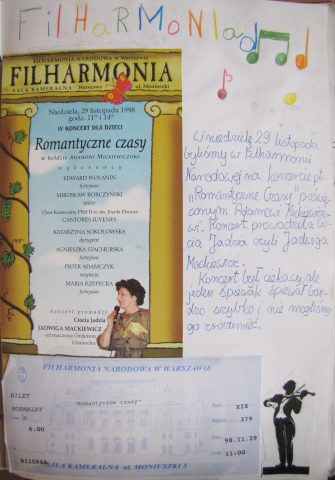 FiLHARMONIA
FILHARMONIA NARODOWA w Warszawie
FILHARMONIA
SALA KAMERALNA Warszawa ul. Moniuszki
Niedziela, 29 listopada 1998
godz. 11⁰⁰ i 14⁰⁰
IV KONCERT DLA DZIECI
Romantyczne czasy
w hołdzie ADAMOWI MICKIEWICZOWI
wykonawcy
EDWARD WOLANIN
fortepian
MIROSŁAW BORCZYŃSKI
śpiew
Chór Kameralny PSM II st. im. Józefa Elsnera
CANTORES IUVENES
KATARZYNA SOKOŁOWSKA
dyrygent
AGNIESZKA STACHURSKA
fortepian
PIOTR ADAMCZYK
recytacje
MARIA RZEPECKA
fortepian
koncert prowadzi
Ciocia Jadzia
JADWIGA MACKIEWICZ
odznaczona Orderem
Uśmiechu
W niedzielę 29 listopada
byliśmy w Filharmonii
Narodowej na koncercie pt.
"Romantyczne Czasy" poświę-
conym Adamowi Mickiewiczo-
wi. Koncert prowadziła Cio-
cia Jadzia czyli Jadwiga
Mackiewicz.
Koncert był ciekawy, ale
jeden śpiewak śpiewał bar-
dzo szybko i nie mogliśmy
go zrozumieć.
FILHARMONIA NARODOWA W WARSZAWIE
BILET
NORMALNY
"Romantyczne czasy"
Rząd XIX
Cena zł
6.00
Miejsce 379
Data 98.11.29
Godz. 11:00
SALA KAMERALNA ul. MONIUSZKI 5